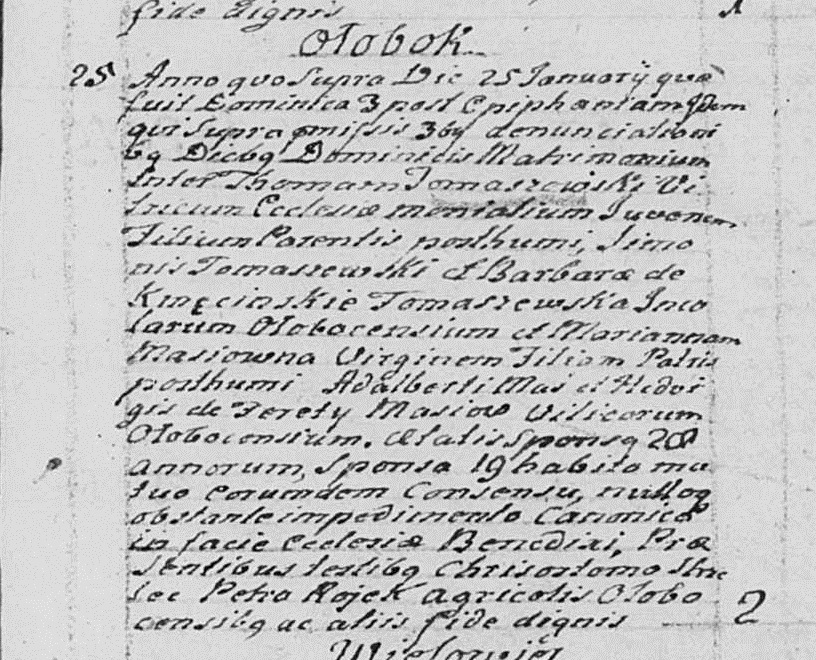 fide dignis 1
Ołobok
25 Anno quo supra Die 25 January quæ
fuit Dominica 3 post Epiphaniam Idem
qui supra pmissis 3bq denunciationi
bq Diebq Dominicis Matrimonium
inter Thomam Tomaszewski Vi
tricum Ecclesiæ monialium Juvenem
Filium Parentis posthumi, Simo
nis Tomaszewski et Barbaræ de
Kmęcinskie Tomaszewska Inco
larum Olobocensium et Mariannam
Masiowna Virginem Filiam Patris
posthumi Adalberti Mas et Hedvi
gis de Ferety Masiow Vilicorum
Olobocensium. Ætatis Sponsq 28
annorum, Sponsa 19 habito mu
tuo eorumdem Consensu, nulloq
obstante impedimento Canonico
in facie Ecclesiæ Benedixi, Præ
sentibus testibq Chrisostomo
Petro Rojek agricolis Olobo
censibq ac aliis fide dignis 2